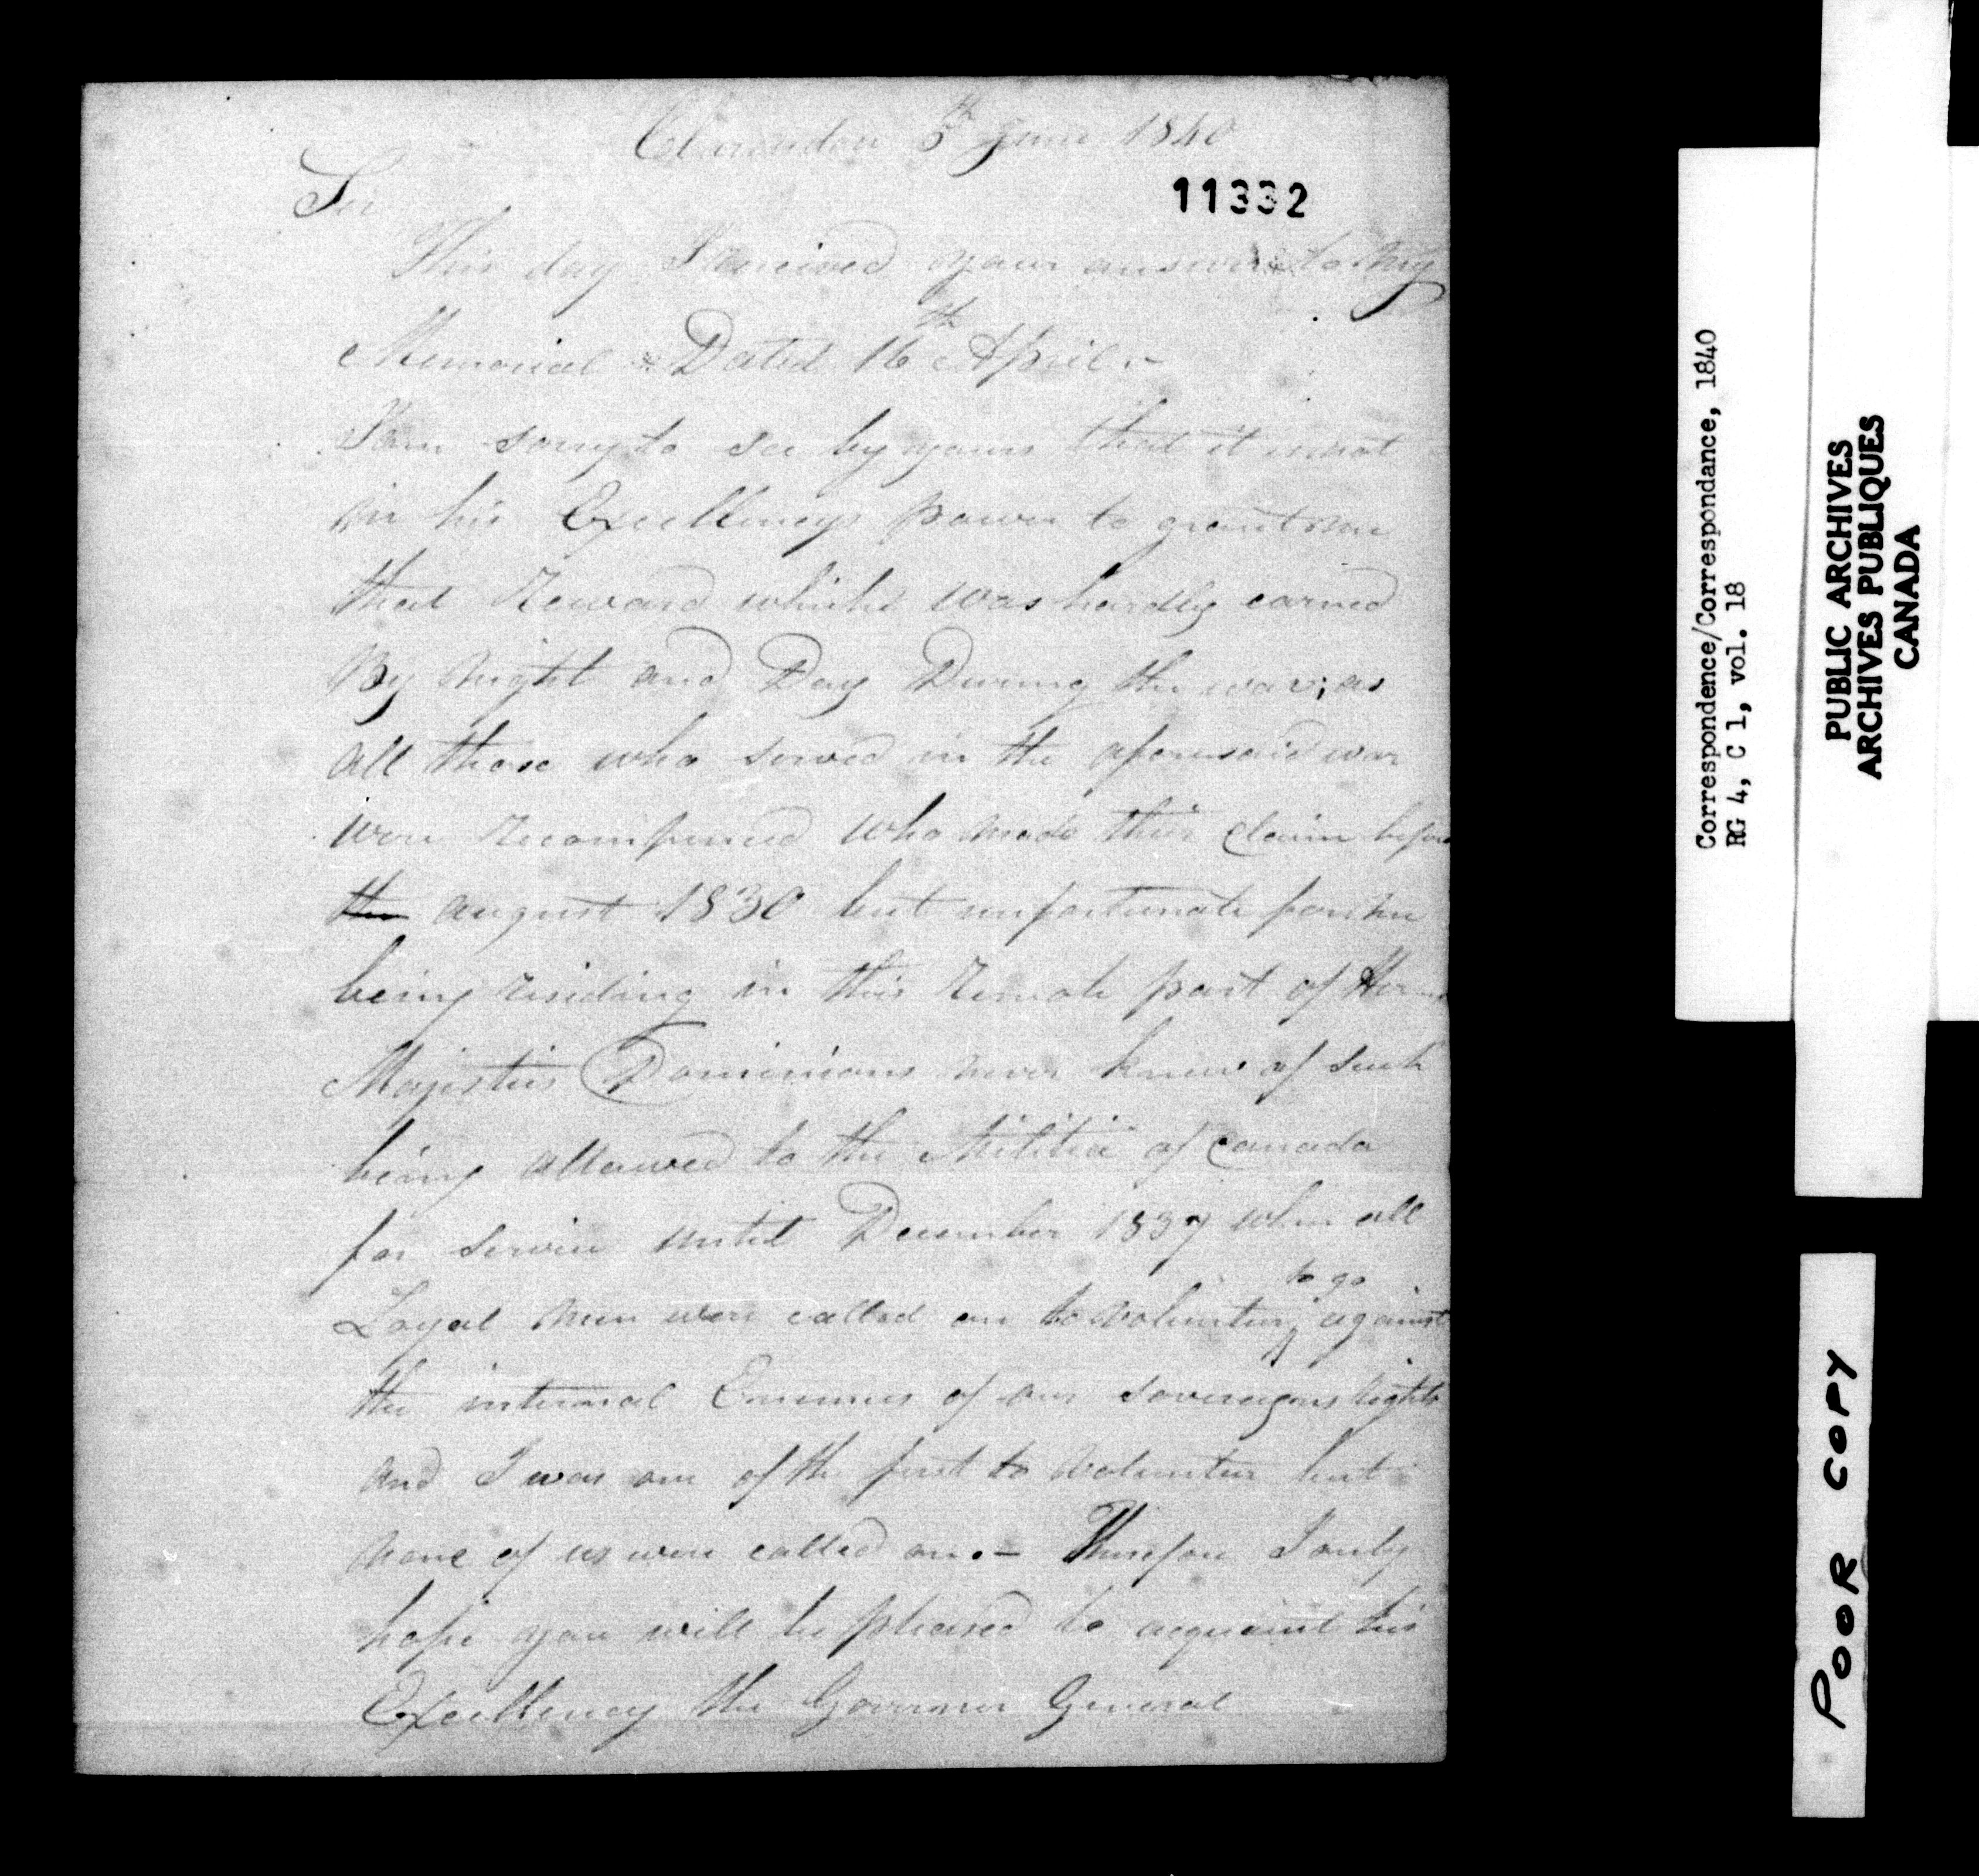 Clarendon 5th June 1840
11332
Sir
This day I received your answer to my
Memorial Dated 16th April.-
I am sorry to see by yours that it is not
in his Excellencys power to grant me
that Reward which was hardly earned
By Night and Day During the war; as
all those who served in the aforesaid war
were recompensed who made their claim before
the august 1830 but unfortunate for me
being residing in this remote part of Her
Majesties Dominions never knew of such
being allowed to the Militia of Canada
for service until December 1837 when all
to go
Loyal men were called on to volunteer against
the internal Enemies of our sovereigns rights
and I was one of the first to volunteer but
none of us were called on.- Therefore I only
hope you will be pleased to acquaint his
Excellency the Governor General
Correspondence/Correspondance, 1840
RG 4, C 1, vol. 18
PUBLIC ARCHIVES
ARCHIVES PUBLIQUES
CANADA
POOR COPY